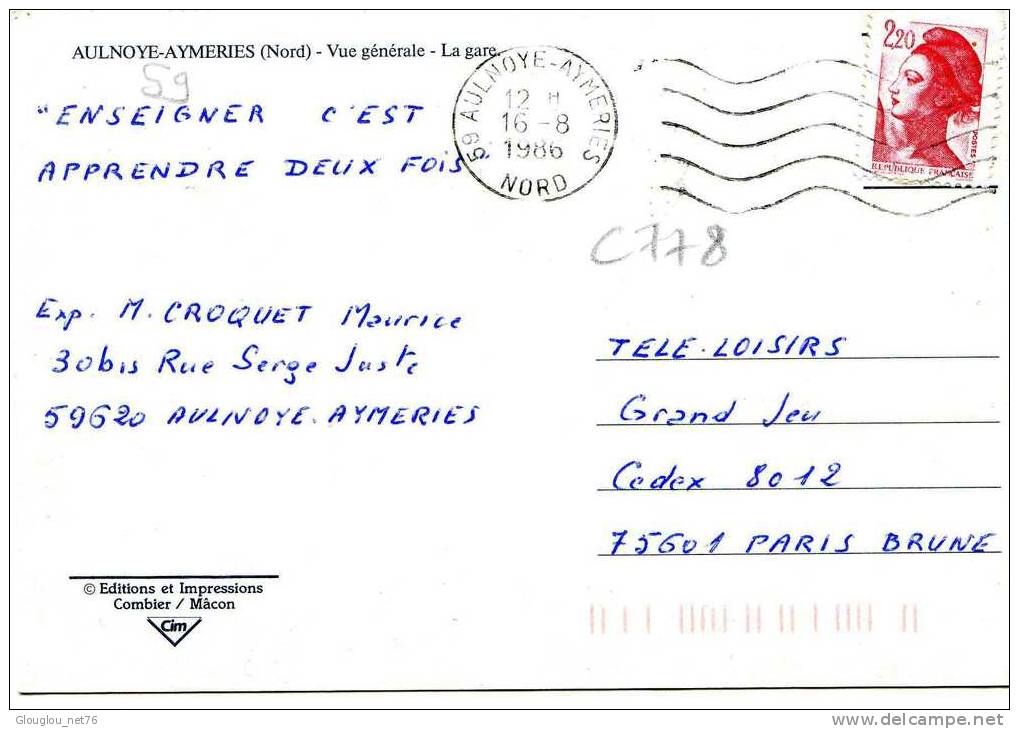 AULNOYE-AYMERIES (Nord) - Vue générale - La gare.
59
"ENSEIGNER C'EST
APPRENDRE DEUX FOIS"
59 AULNOYE-AYMERIES
12 H
16-8
1986
NORD
2,20
POSTES
REPUBLIQUE FRANÇAISE
C778
Exp. M. CROQUET Maurice
30bis Rue Serge Juste
59620 AULNOYE-AYMERIES
TELE-LOISIRS
Grand Jeu
Cedex 8012
75601 PARIS BRUNE
© Editions et Impressions
Combier / Mâcon
Cim
Glouglou_net76
www.delcampe.net